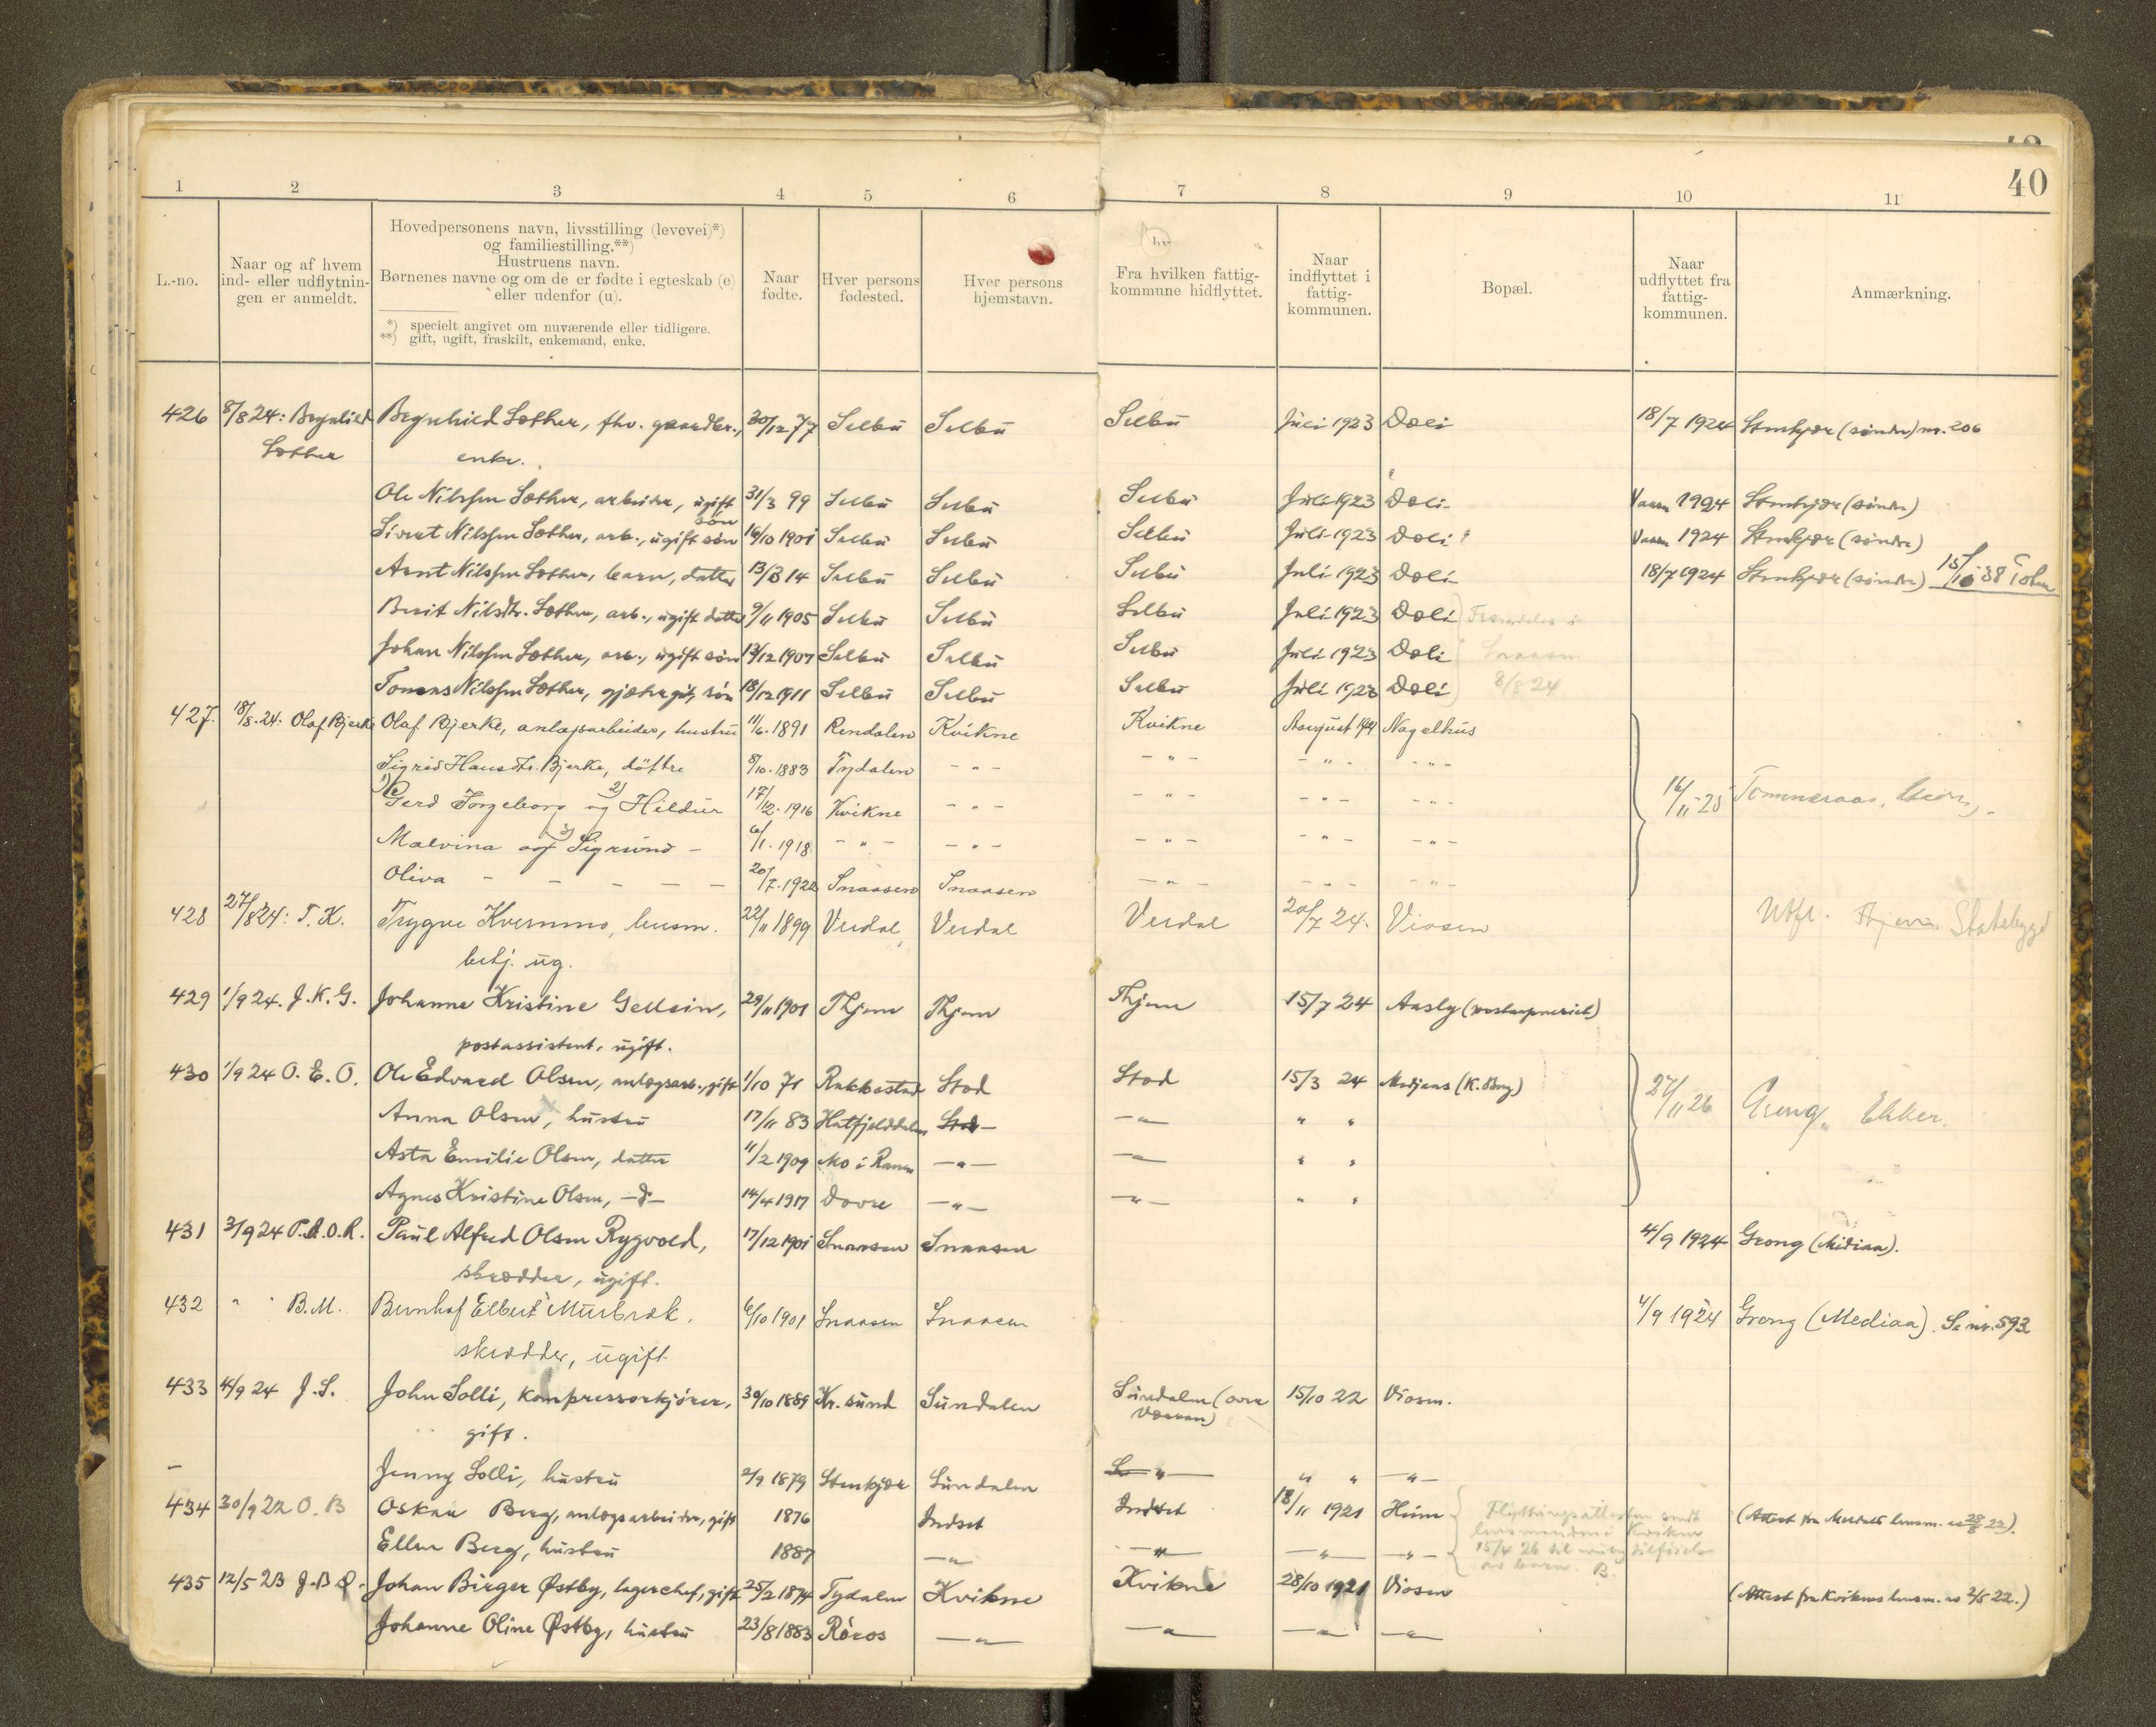 40
1 2 3 4 5 6 7 8 9 10 11
L.-no.
Naar og af hvem
ind- eller udflytnin-
gen er anmeldt.
Hovedpersonens navn, livsstilling (levevei)*)
og familiestilling.**)
Hustruens navn.
Børnenes navne og om de er fødte i egteskab (e)
eller udenfor (u).
*) specielt angivet om nuværende eller tidligere.
**) gift, ugift, fraskilt, enkemand, enke.
Naar
fødte.
Hver persons
fødested.
Hver persons
hjemstavn.
Fra hvilken fattig-
kommune hidflyttet.
Naar
indflyttet i
fattig-
kommunen.
Bopæl.
Naar
udflyttet fra
fattig-
kommunen.
Anmærkning.
426 8/8 24: Bryhild Brynhild Sæther, fhv. gaardbr., 30/12 77 Selbu Selbu Selbu Juli 1923 Doli 18/7 1924 Stenkjær (søndre) nr. 206
Sæther enke.
Ole Nilssen Sæther, arbeider, ugift søn 31/3 99 Selbu Selbu Selbu Juli 1923 Doli Vaaren 1924 Stenkjær (søndre)
Sivert Nilssen Sæther, arb., ugift søn 16/10 1901 Selbu Selbu Selbu Juli 1923 Doli Vaaren 1924 Stenkjær (søndre)
Arnt Nilssen Sæther, barn, datter 13/3 14 Selbu Selbu Selbu Juli 1923 Doli 18/7 1924 Stenkjær (søndre) 15/10-38
Berit Nilsdtr. Sæther, arb., ugift datter 9/11 1905 Selbu Selbu Selbu Juli 1923 Doli Fremdeles i
Johan Nilssen Sæther, arb., ugift søn 13/12 1907 Selbu Selbu Selbu Juli 1923 Doli Snaasen
Tomas Nilssen Sæther, gjætergut, søn 18/12 1911 Selbu Selbu Selbu Juli 1923 Doli 8/8 24
427. 18/8.24: Olaf Bjerke Olaf Bjerke, anlægsarbeider, hustru 11/6.1891 Rendalen Kvikne Kvikne August 1921 Nagelhus
Sigrid Hansdtr. Bjerke, döttre 8/10.1883 Tydalen -"- -"- -"- -"-
1) Gerd Ingeborg og 2) Hildur 17/12.1916 Kvikne -"- -"- -"- -"- 16/11-28
Malvina og 3) Sigrund - 6/1.1918 -"- -"- -"- -"- -"-
Oliva - - - - - 20/7.1922 Snaasen Snaasen -"- -"- -"-
428 27/8 24: T. K. Trygve Kvernmo, lensm. 22/11 1899 Verdal Verdal Verdal 20/7 24. Viosen Utfl. Statsbygd
betj. ug.
429 1/9 24. J. K. G. Johanne Kristine Gellein, 29/11 1901 Thjem Thjem Thjem 15/7 24 Aasly (postaapneriet)
postassistent, ugift.
430 1/9 24 O. E. O. Ole Edvard Olsen, anlægsarb., gift 1/10 71 Rakkestad Stod Stod 15/3 24 Medjeaas (K. Berg) 27/11 26 Grong, Ekker.
Anna Olsen, hustru 17/11 83 Hatfjelddalen Stod -"- " "
Asta Emilie Olsen, datter 11/2 1909 Mo i Ranen -"- -"- " "
Agnes Kristine Olsen, -d- 14/4 1917 Dovre -"- -"- " "
431 3/9 24 P.A.O.R. Paul Alfred Olsen Rygvold, 17/12 1901 Snaasen Snaasen 4/9 1924 Grong (Mediaa).
skrædder, ugift.
432 " " B.M. Bernhof Elbert Murbræk. 6/10 1901 Snaasen Snaasen 4/9 1924 Grong (Mediaa). Se nr. 593
skrædder, ugift
433 4/9 24 J.S. John Solli, kompressorkjörer, 30/10 1889 Kr.sund Sundalen Sundalen (øvre 15/10 22 Viosen.
gift.
- Jenny Solli, hustru 2/9 1879 Stenkjær Sundalen -"- " " -"-
434 30/9 22 O. B Oskar Berg, anlægsarbeider, gift 1876 Indset Indset 18/11 1921 Heim Flytningsattesten sendt (Attest fra Meldals lensm. av 28/8 22).
Ellen Berg, hustru 1887 -"- -"- -"- -"- lensmanden i Kvikne
15/4 26 til
av barn. B.
435 12/5 23 J.B.Ø. Johan Birger Østby, lagerchef, gift 25/2 1874 Tydalen Kvikne Kvikne 28/10 1921 Viosen (Attest fra Kviknes lensm. av 2/5 22.)
Johanne Oline Østby, hustru 23/8 1883 Röros -"- -"- -"- -"-